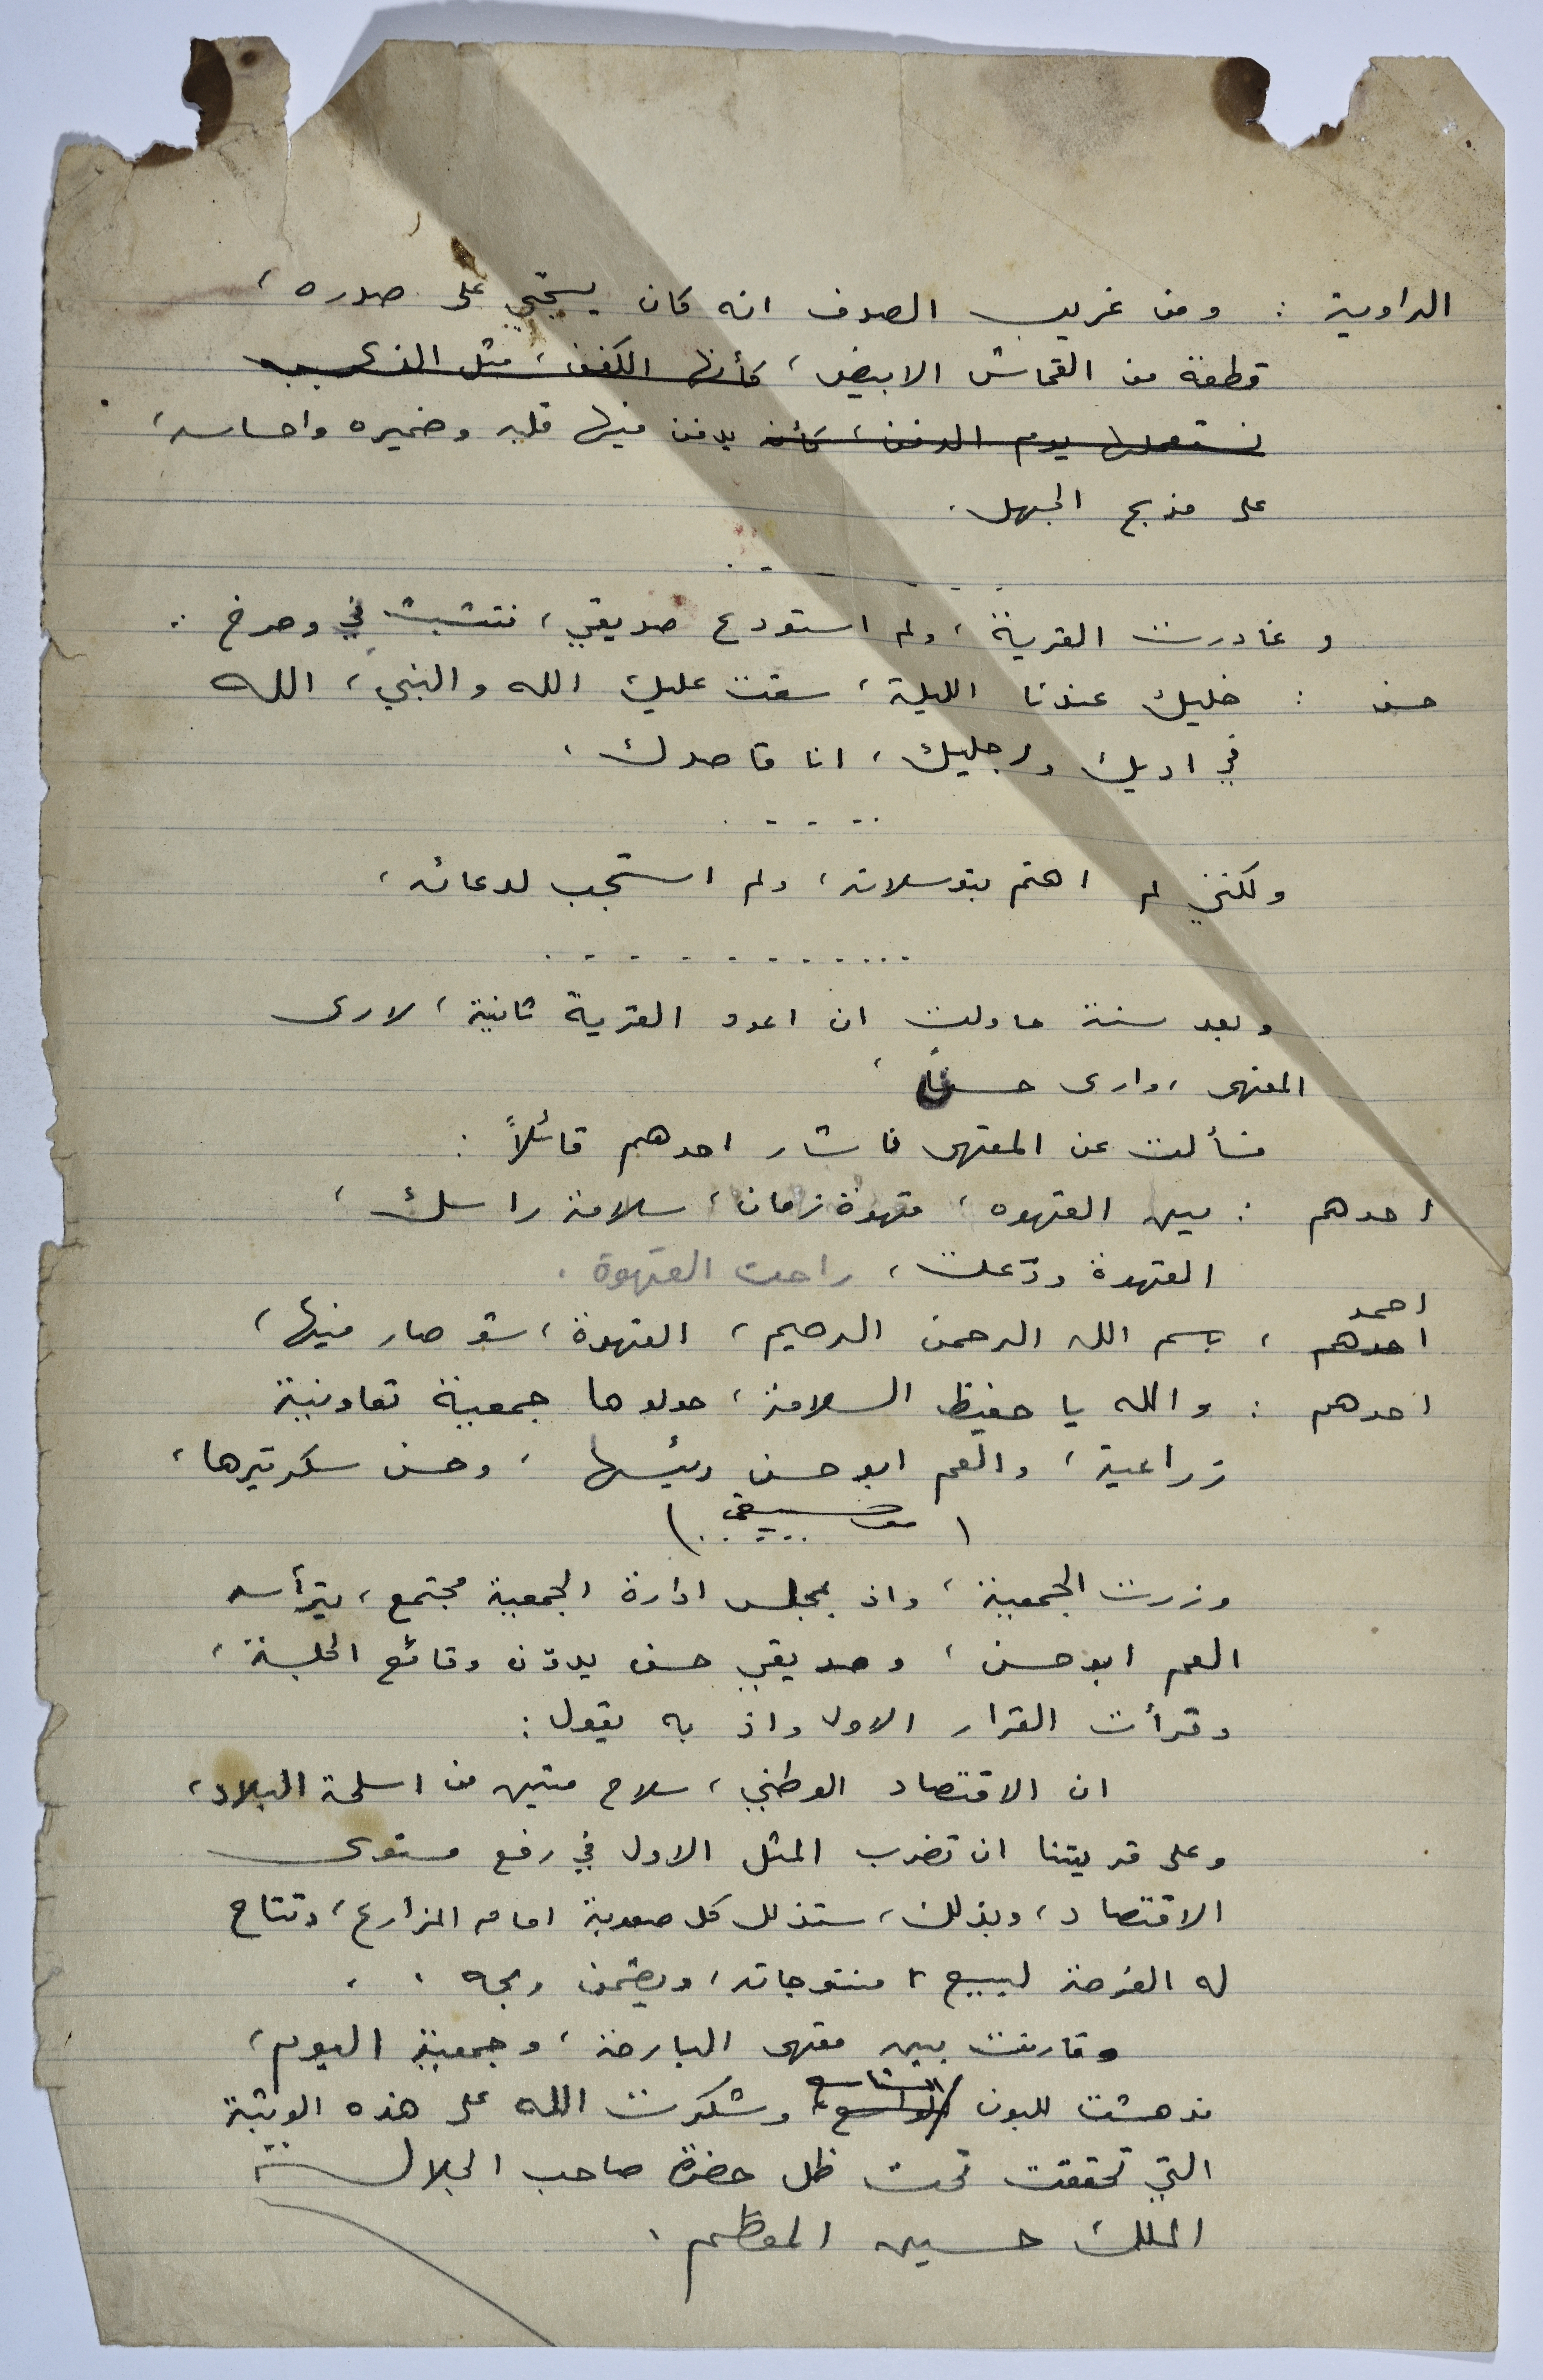 الراوية : ومن غريب الصدف انه كان على صدره ،
قطعة من القماش الابيض ، كأنها الكفن ، مثل
نستعملها يوم الدفن ، كأنه يدفن فيها قلبه وضميره واحساسه ،
على مذبح الجهل .
. . . . .
وغادرت القرية ، ولم استودع صديقي ، فتشبث في وصرخ :
حسن : خليك عندنا الليلة ، سقت عليك الله والنبي ، الله
في اديك ورجليك ، انا قاصدك ،
. . . . .
ولكنني لم اهتم بتوسلاته ، ولم استجب لدعائه ،
. . . . . . . . . .
وبعد سنة حاولت ان اعود القرية ثانية ، لارى
المقهى ، وارى حسناً ،
فسألت عن المقهى فاشار احدهم قائلاً :
احدهم : مين القهوه ، قهوة زمان ، سلامة راسك ،
القهوة ودّعت ، راحت القهوة .
احمد
احدهم ، بسم الله الرحمن الرحيم ، القهوة ، شو صار فيها ،
احدهم : والله يا حفيظ السلامة ، حولوها جمعية تعاونية
زراعية ، والعم ابو حسن رئيسها ، وحسن سكرتيرها ،
( موسيقى )
وزرت الجمعية ، واذ بمجلس ادارة الجمعية مجتمع ، يترأسه
العم ابو حسن ، وصديقي حسن يدوّن وقائع الجلسة ،
وقرأت القرار الاول واذ به يقول :
ان الاقتصاد الوطني ، سلاح متين من اسلحة البلاد ،
وعلى قريتنا ان تضرب المثل الاول في رفع مستوى
الاقتصاد ، وبذلك ، ستذلل كل صعوبة امام المزارع ، وتتاح
له الفرصة ليبيع منتوجاته ، ويضمن ربحه .
وقارنت بين مقهى البارحة ، وجمعية اليوم ،
الشاسع
فدهشت للبون الواسع ، وشكرت الله على هذه الوثبة
التي تحققت تحت ظل حضرة صاحب الجلالة
الملك حسين المعظم .